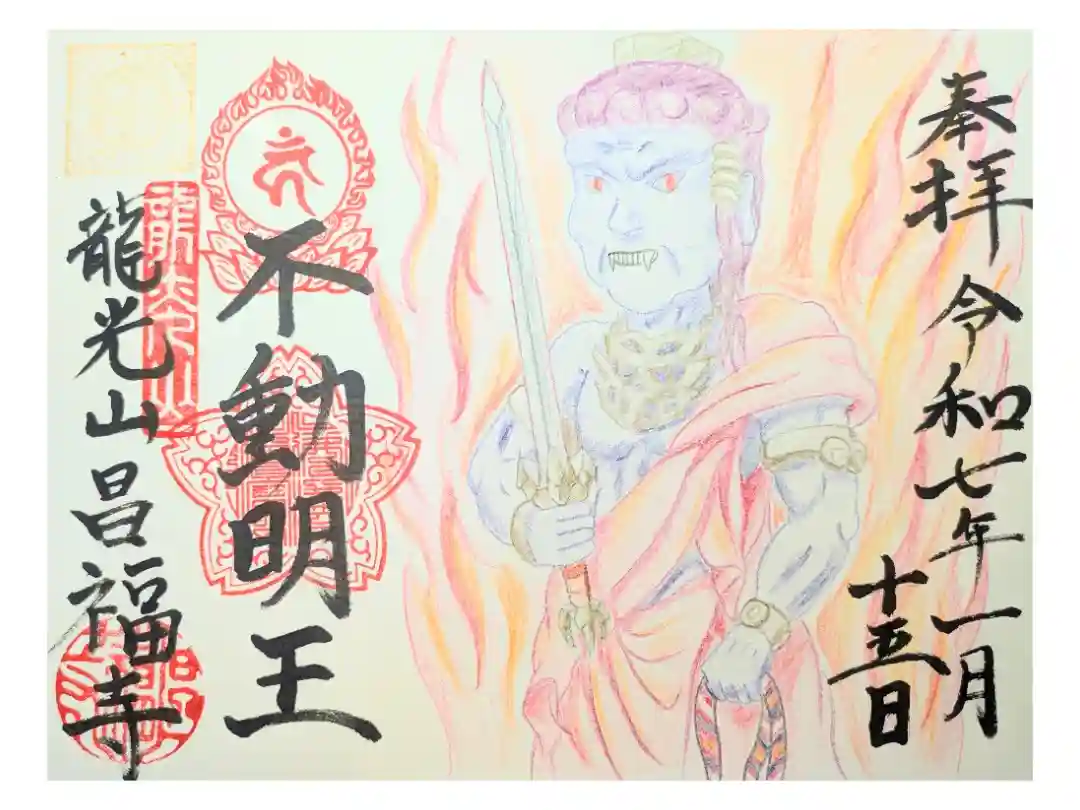 奉拝
令和七年一月
十五日
不動明王
龍光山昌福寺
龍光山